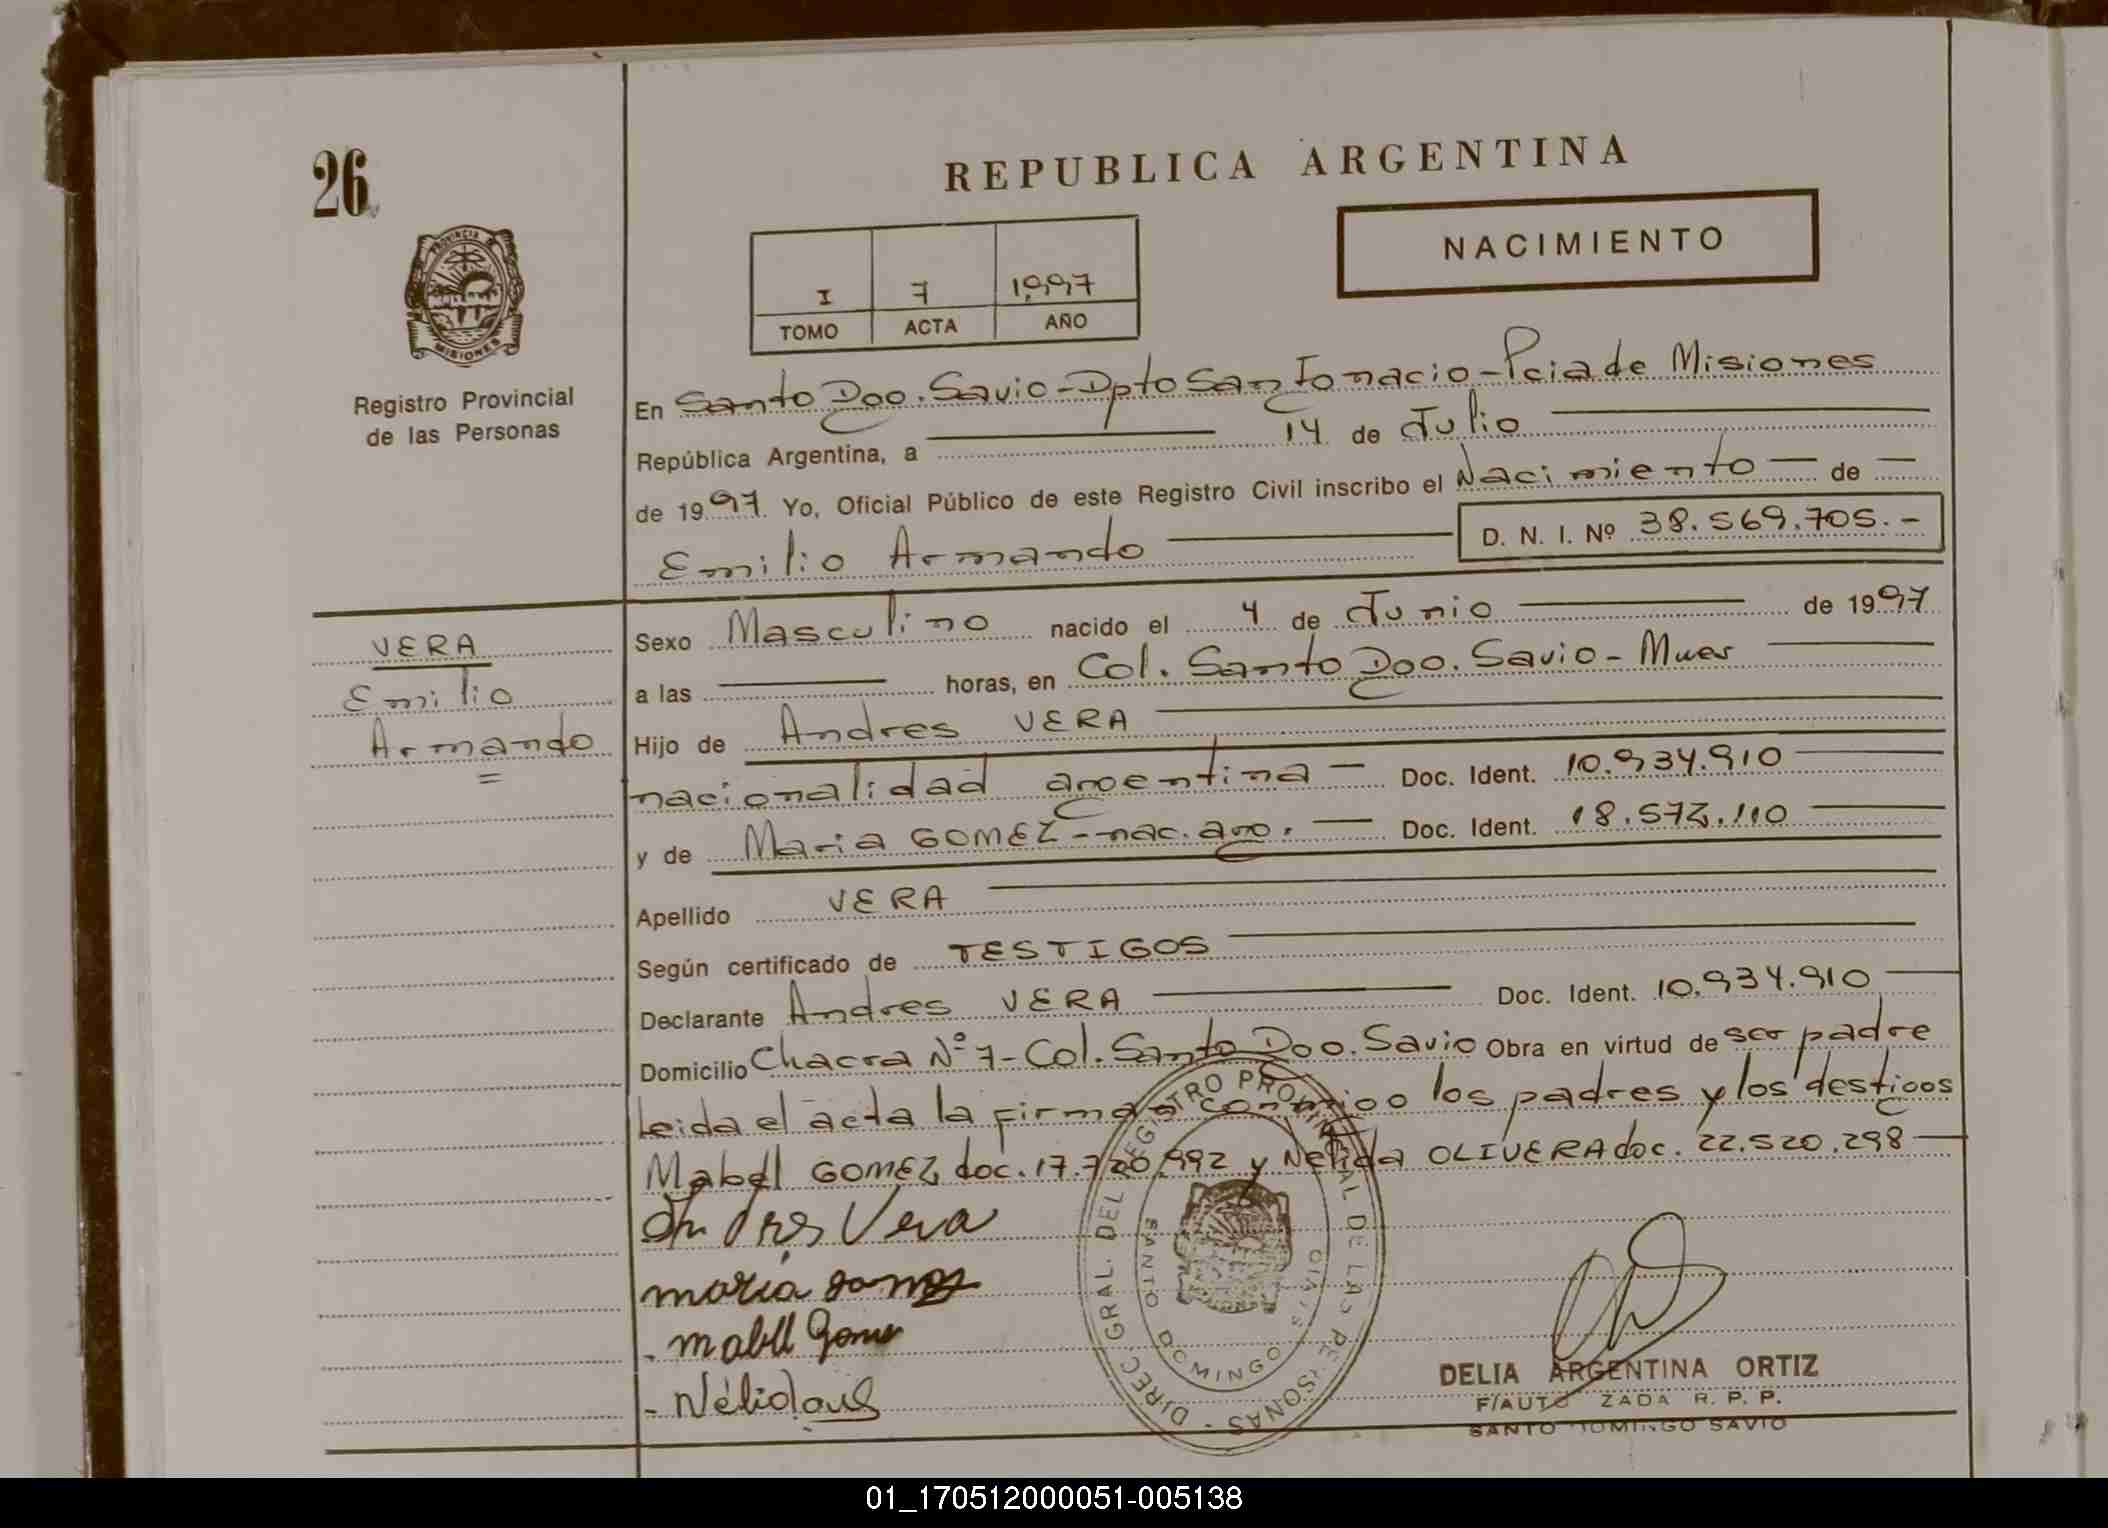 26
PROVINCIA DE
MISIONES
Registro Provincial
de las Personas
REPUBLICA ARGENTINA
NACIMIENTO
I 7 1997
TOMO ACTA AÑO
En Santo Dgo. Savio - Dpto San Ignacio - Pcia de Misiones
República Argentina, a 14 de Julio
de 1997 Yo, Oficial Público de este Registro Civil inscribo el Nacimiento - de -
Emilio Armando D. N. I. Nº 38.569.705.-
VERA
Emilio
Armando
=
Sexo Masculino nacido el 4 de Junio de 1997
a las horas, en Col. Santo Dgo. Savio -
Hijo de Andres VERA
nacionalidad argentina - Doc. Ident. 10.934.910
y de Maria GOMEZ - nac. arg. - Doc. Ident.
Apellido VERA
Según certificado de TESTIGOS
Declarante Andres VERA Doc. Ident. 10.934.910
Domicilio Chacra Nº 7 - Col. Santo Dgo. Savio Obra en virtud de ser padre
Leida el acta la firman conmigo los padres y los destigos
Mabel GOMEZ doc. 17.720.992 y Nelida OLIVERA doc. 22.520.298
Andres Vera
maria gomez
- mabell Gomes
-
DIREC. GRAL. DEL REGISTRO PROVINCIAL DE LAS PERSONAS -
SANTO DOMINGO
DELIA ARGENTINA ORTIZ
F/AUTORIZADA R. P. P.
SANTO DOMINGO SAVIO
01_170512000051-005138